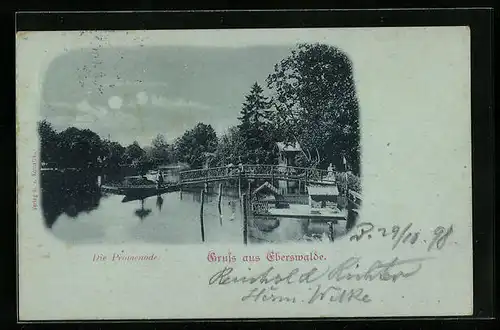 Die Promenade.
Gruss aus Eberswalde.
29/10 98
Reinhold Richter
Wilke